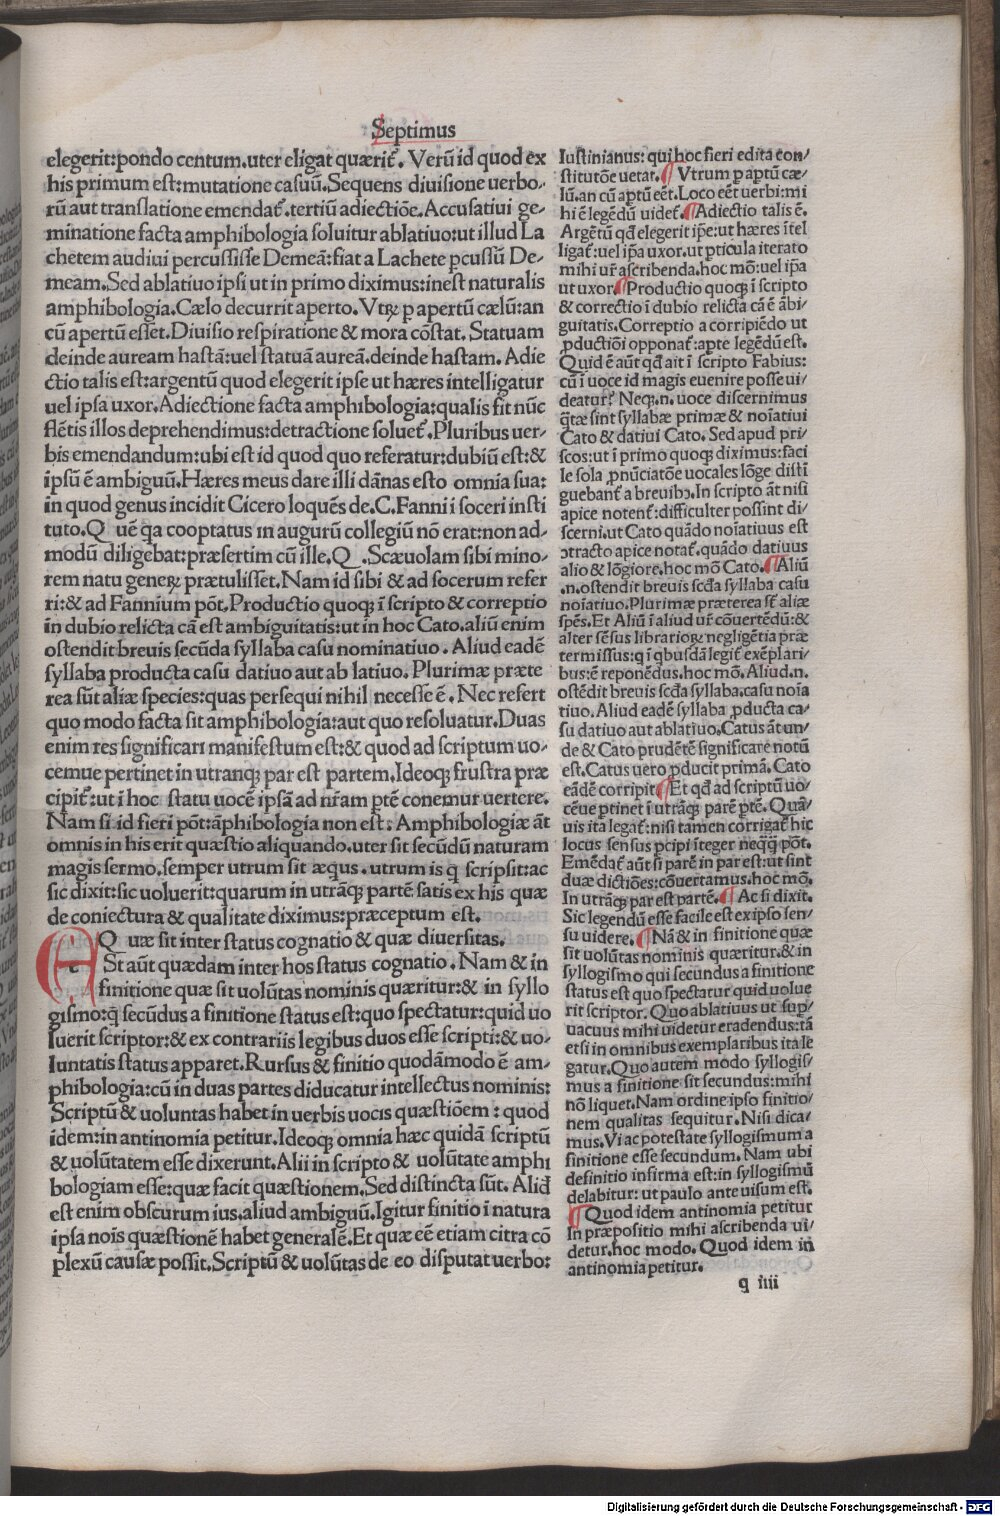 Septimus
elegerit:pondo centum.uter eligat quærit᷑. Verũ id quod ex
his primum est:mutatione casuũ.Sequens diuisione uerbo-
rũ aut translatione emendat᷑.tertiũ adiectiõe.Accusatiui ge-
minatione facta amphibologia soluitur ablatiuo:ut illud La
chetem audiui percussisse Demeã:fiat a Lachete ꝑcussũ De-
meam.Sed ablatiuo ipsi ut in primo diximus:inest naturalis
amphibologia.Cælo decurrit aperto.Vtrꝝ ꝑ apertũ cælũ:an
cũ apertũ esset.Diuisio respiratione & mora cõstat.Statuam
deinde auream hastã:uel statuã aureã.deinde hastam.Adie
ctio talis est:argentũ quod elegerit ipse ut hæres intelligatur
uel ipsa uxor.Adiectione facta amphibologia:qualis fit nũc
flẽtis illos deprehendimus:detractione soluet᷑.Pluribus uer-
bis emendandum:ubi est id quod quo referatur:dubiũ est:&
ipsũ ẽ ambiguũ.Hæres meus dare illi dãnas esto omnia sua:
in quod genus incidit Cicero loquẽs de.C.Fannii soceri insti
tuto.Q uẽ q̃a cooptatus in augurũ collegiũ nõ erat:non ad-
modũ diligebat:præsertim cũ ille.Q .Scæuolam sibi mino-
rem natu generꝝ prætulisset.Nam id sibi & ad socerum refer
ri:& ad Fannium põt.Productio quoqꝫ ĩ scripto & correptio
ĩn dubio relicta cã est ambiguitatis:ut in hoc Cato.aliũ enim
ostendit breuis secũda syllaba casu nominatiuo. Aliud eadẽ
syllaba producta casu datiuo aut ablatiuo. Plurimæ præte
rea sũt aliæ species:quas persequi nihil necesse ẽ. Nec refert
quo modo facta sit amphibologia:aut quo resoluatur.Duas
enim res significari manifestum est:& quod ad scriptum uo-
cemue pertinet in utranqꝫ par est partem.Ideoqꝫ frustra præ
cipit᷑:ut ĩ hoc statu uocẽ ipsã ad nr̃am ptẽ conemur uertere.
Nam si id fieri põt:ãphibologia non est. Amphibologiæ ãt
omnis in his erit quæstio aliquando.uter sit secũdũ naturam
magis sermo.semper utrum sit æqus.utrum is q̃ scripsit:ac
sic dixit:sic uoluerit:quarum in utrãqꝫ partẽ satis ex his quæ
de coniectura & qualitate diximus:præceptum est.
Q uæ sit inter status cognatio & quæ diuersitas.
ASt aũt quædam inter hos status cognatio.Nam & in
finitione quæ sit uolũtas nominis quæritur:& in syllo
gismo:q̃ secũdus a finitione status est:quo spectatur:quid uo
luerit scriptor:& ex contrariis legibus duos esse scripti:& uo-
luntatis status apparet.Rursus & finitio quodãmodo ẽ am-
phibologia:cũ in duas partes diducatur intellectus nominis:
Scriptũ & uoluntas habet in uerbis uocis quæstiõem:quod
idem:in antinomia petitur.Ideoqꝫ omnia hæc quidã scriptũ
& uolũtatem esse dixerunt.Alii in scripto & uolũtate amphi
bologiam esse:quæ facit quæstionem.Sed distincta sũt.Aliđ
est enim obscurum ius,aliud ambiguũ.Igitur finitio ĩ natura
ipsa nois quæstionẽ habet generalẽ.Et quæ eẽ etiam citra cõ
plexũ causæ possit.Scriptũ & uolũtas de eo disputat uerbo:
Iustinianus: qui hoc fieri edita con/
stitutõe uetat.Vtrum ꝑ aptũ cæ-
lũ.an cũ aptũ eẽt.Loco eẽt uerbi:mi
hi ẽ legẽdũ uidet᷑.Adiectio talis ẽ.
Argẽtũ qđ elegerit ip̃e:ut hæres ĩtel
ligat᷑:uel ip̃a uxor.ut pticula iterato
mihi ur̃ ascribenda.hoc mõ:uel ip̃a
ut uxor.Productio quoqꝫ ĩ scripto
& correctio ĩ dubio relicta cã ẽ ãbi/
guitatis.Correptio a corripiẽdo ut
ꝓductiõi opponat᷑:apte legẽdũ est.
Quid ẽ aũt qđ ait ĩ scripto Fabius:
cũ ĩ uoce id magis euenire posse ui/
deatur? Neqꝫ.n. uoce discernimus
q̃tæ sint syllabæ primæ & noĩatiui
Cato & datiui Cato. Sed apud pri/
scos:ut ĩ primo quoqꝫ diximus:faci
le sola ꝓnũciatõe uocales lõge distĩ
guebant᷑ a breuibꝫ.In scripto ãt nisi
apice notent᷑:difficulter possint di/
scerni.ut Cato quãdo noĩatiuus est
ↄtracto apice notat᷑.quãdo datiuus
alio & lõgiore.hoc mõ Cato.Aliũ
.n.ostendit breuis scđa syllaba casu
noĩatiuo.Plurimæ præterea st᷑ aliæ
spẽs.Et Aliũ ĩ aliud ur̃ cõuertẽdũ:&
alter sẽsus librarioꝝ negligẽtia præ
termissus:q ĩ qbusdã legit᷑ exẽplari/
bus:ẽ reponẽdus.hoc mõ.Aliud.n.
ostẽdit breuis scđa syllaba.casu noĩa
tiuo.Aliud eadẽ syllaba ꝓducta ca/
su datiuo aut ablatiuo.Catus ãt un/
de & Cato prudẽtẽ significare notũ
est.Catus uero ꝓducit primã.Cato
eãdẽ corripit.Et qđ ad scriptũ uo/
cẽue ptinet ĩ utrãqꝫ parẽ ptẽ. Quã/
uis ita legat᷑:nisi tamen corrigat᷑ hic
locus sensus pcipi ĩteger neqꝗ põt.
Emẽdat᷑ aũt si parẽ in par est:ut sint
duæ dictiões:cõuertamus.hoc mõ.
In utrãqꝫ par est partẽ. Ac si dixit.
Sic legendũ esse facile est ex ipso sen/
su uidere. Nã & in finitione quæ
sit uolũtas nominis quæritur.& in
syllogismo qui secundus a finitione
status est quo spectatur quid uolue
rit scriptor. Quo ablatiuus ut sup/
uacuus mihi uidetur eradendus:tã
etsi in omnibus exemplaribus ita le
gatur.Quo autem modo syllogis/
mus a finitione sit secundus:mihi
nõ liquet.Nam ordine ipso finitio/
nem qualitas sequitur.Nisi dica/
mus.Vi ac potestate syllogismum a
finitione esse secundum. Nam ubi
definitio infirma est:in syllogismũ
delabitur: ut paulo ante uisum est.
Quod idem antinomia petitur
In præpositio mihi ascribenda ui/
detur.hoc modo. Quod idem in
antinomia petitur.
q iiii
Digitalisierung gefördert durch die Deutsche Forschungsgemeinschaft - DFG